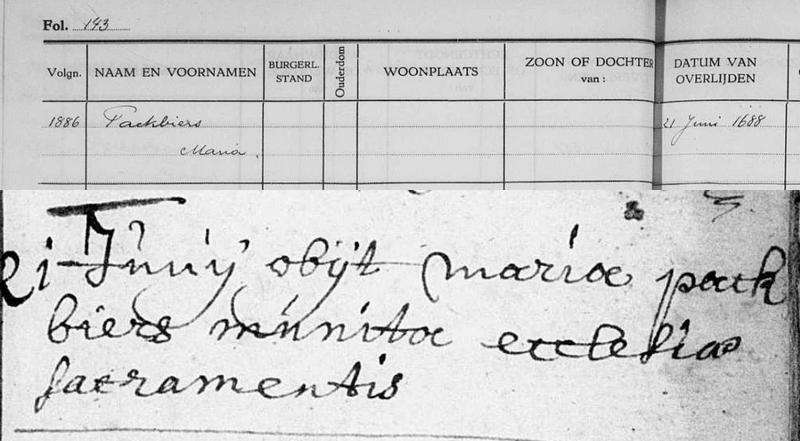 Fol. 143
Volgn. NAAM EN VOORNAMEN BURGERL. STAND Ouderdom WOONPLAATS ZOON OF DOCHTER van: DATUM VAN OVERLIJDEN
1886 Packbiers 21 Juni 1688
Maria.
21 Junÿ obÿt maria pack
biers munita ecclesia
sacramentis